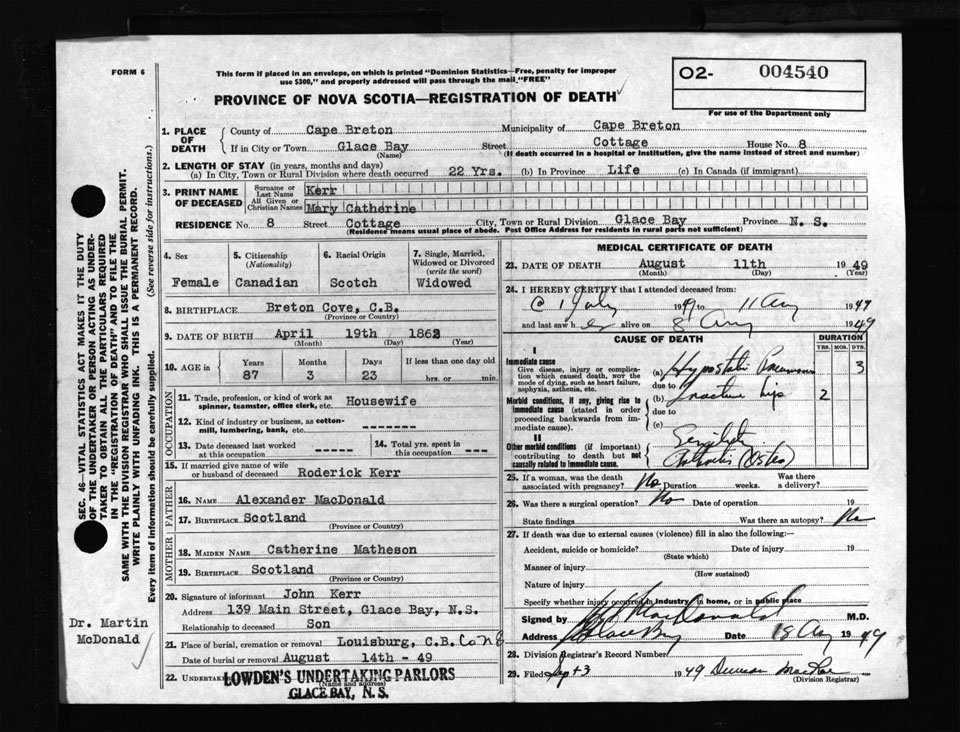 FORM 6
This form if placed in an envelope, on which is printed "Dominion Statistics—Free, penalty for improper
use $300," and properly addressed will pass through the mail "FREE"
PROVINCE OF NOVA SCOTIA—REGISTRATION OF DEATH
O2- 004540
For use of the Department only
1. PLACE OF DEATH County of Cape Breton Municipality of Cape Breton
If in City or Town Glace Bay (Name) Street Cottage House No. 8
(If death occurred in a hospital or institution, give the name instead of street and number)
2. LENGTH OF STAY (in years, months and days)
(a) In City, Town or Rural Division where death occurred 22 Yrs. (b) In Province Life (c) In Canada (if immigrant)
3. PRINT NAME OF DECEASED Surname or Last Name Kerr
All Given or Christian Names Mary Catherine
RESIDENCE No. 8 Street Cottage City, Town or Rural Division Glace Bay Province N. S.
(Residence means usual place of abode. Post Office Address for residents in rural parts not sufficient)
4. Sex Female
5. Citizenship (Nationality) Canadian
6. Racial Origin Scotch
7. Single, Married, Widowed or Divorced (write the word) Widowed
8. BIRTHPLACE Breton Cove, C.B.
(Province or Country)
9. DATE OF BIRTH April 19th 1862
(Month) (Day) (Year)
10. AGE in Years 87 Months 3 Days 23 If less than one day old hrs. or min.
OCCUPATION
11. Trade, profession, or kind of work as spinner, teamster, office clerk, etc. Housewife
12. Kind of industry or business, as cotton-mill, lumbering, bank, etc. --------
13. Date deceased last worked at this occupation -----
14. Total yrs. spent in this occupation ----
15. If married give name of wife or husband of deceased Roderick Kerr
FATHER
16. NAME Alexander MacDonald
17. BIRTHPLACE Scotland
(Province or Country)
MOTHER
18. MAIDEN NAME Catherine Matheson
19. BIRTHPLACE Scotland
(Province or Country)
20. Signature of informant John Kerr
Address 139 Main Street, Glace Bay, N.S.
Relationship to deceased Son
21. Place of burial, cremation or removal Louisburg, C.B.
Date of burial or removal August 14th - 49
22. UNDERTAKER LOWDEN'S UNDERTAKING PARLORS
(Name and address)
GLACE BAY, N. S.
MEDICAL CERTIFICATE OF DEATH
23. DATE OF DEATH August 11th 1949
(Month) (Day) (Year)
24. I HEREBY CERTIFY that I attended deceased from:
@ 1 July 1949 to 11 Aug 1949
and last saw her alive on 8 Aug 1949
CAUSE OF DEATH DURATION
YRS. MOS. DYS.
I
Immediate cause
Give disease, injury or complication which caused death, NOT the mode of dying, such as heart failure, asphyxia, asthenia, etc.
(a) Hypostatic Pneumonia 3
due to
Morbid conditions, if any, giving rise to immediate cause (stated in order proceeding backwards from immediate cause).
(b) Fracture hip 2
due to
(c)
II
Other morbid conditions (if important) contributing to death but not causally related to immediate cause.
Senility
Arthritis (Osteo)
25. If a woman, was the death associated with pregnancy? No Duration weeks. Was there a delivery?
26. Was there a surgical operation? No Date of operation 19
State findings Was there an autopsy? No
27. If death was due to external causes (violence) fill in also the following:—
Accident, suicide or homicide? Date of injury 19
(State which)
Manner of injury
(How sustained)
Nature of injury
Specify whether injury occurred in industry, in home, or in public place
Signed by MacDonald M.D.
Address Glace Bay Date 18 Aug 1949
28. Division Registrar's Record Number
29. Filed Sept 3 1949 Duncan MacRae
(Division Registrar)
SEC. 46—VITAL STATISTICS ACT MAKES IT THE DUTY
OF THE UNDERTAKER OR PERSON ACTING AS UNDER-
TAKER TO OBTAIN ALL THE PARTICULARS REQUIRED
IN THE "REGISTRATION OF DEATH" AND TO FILE THE
SAME WITH THE DIVISION REGISTRAR WHO SHALL ISSUE THE BURIAL PERMIT.
WRITE PLAINLY WITH UNFADING INK. THIS IS A PERMANENT RECORD.
Every item of information should be carefully supplied. (See reverse side for instructions.)
Dr. Martin
McDonald